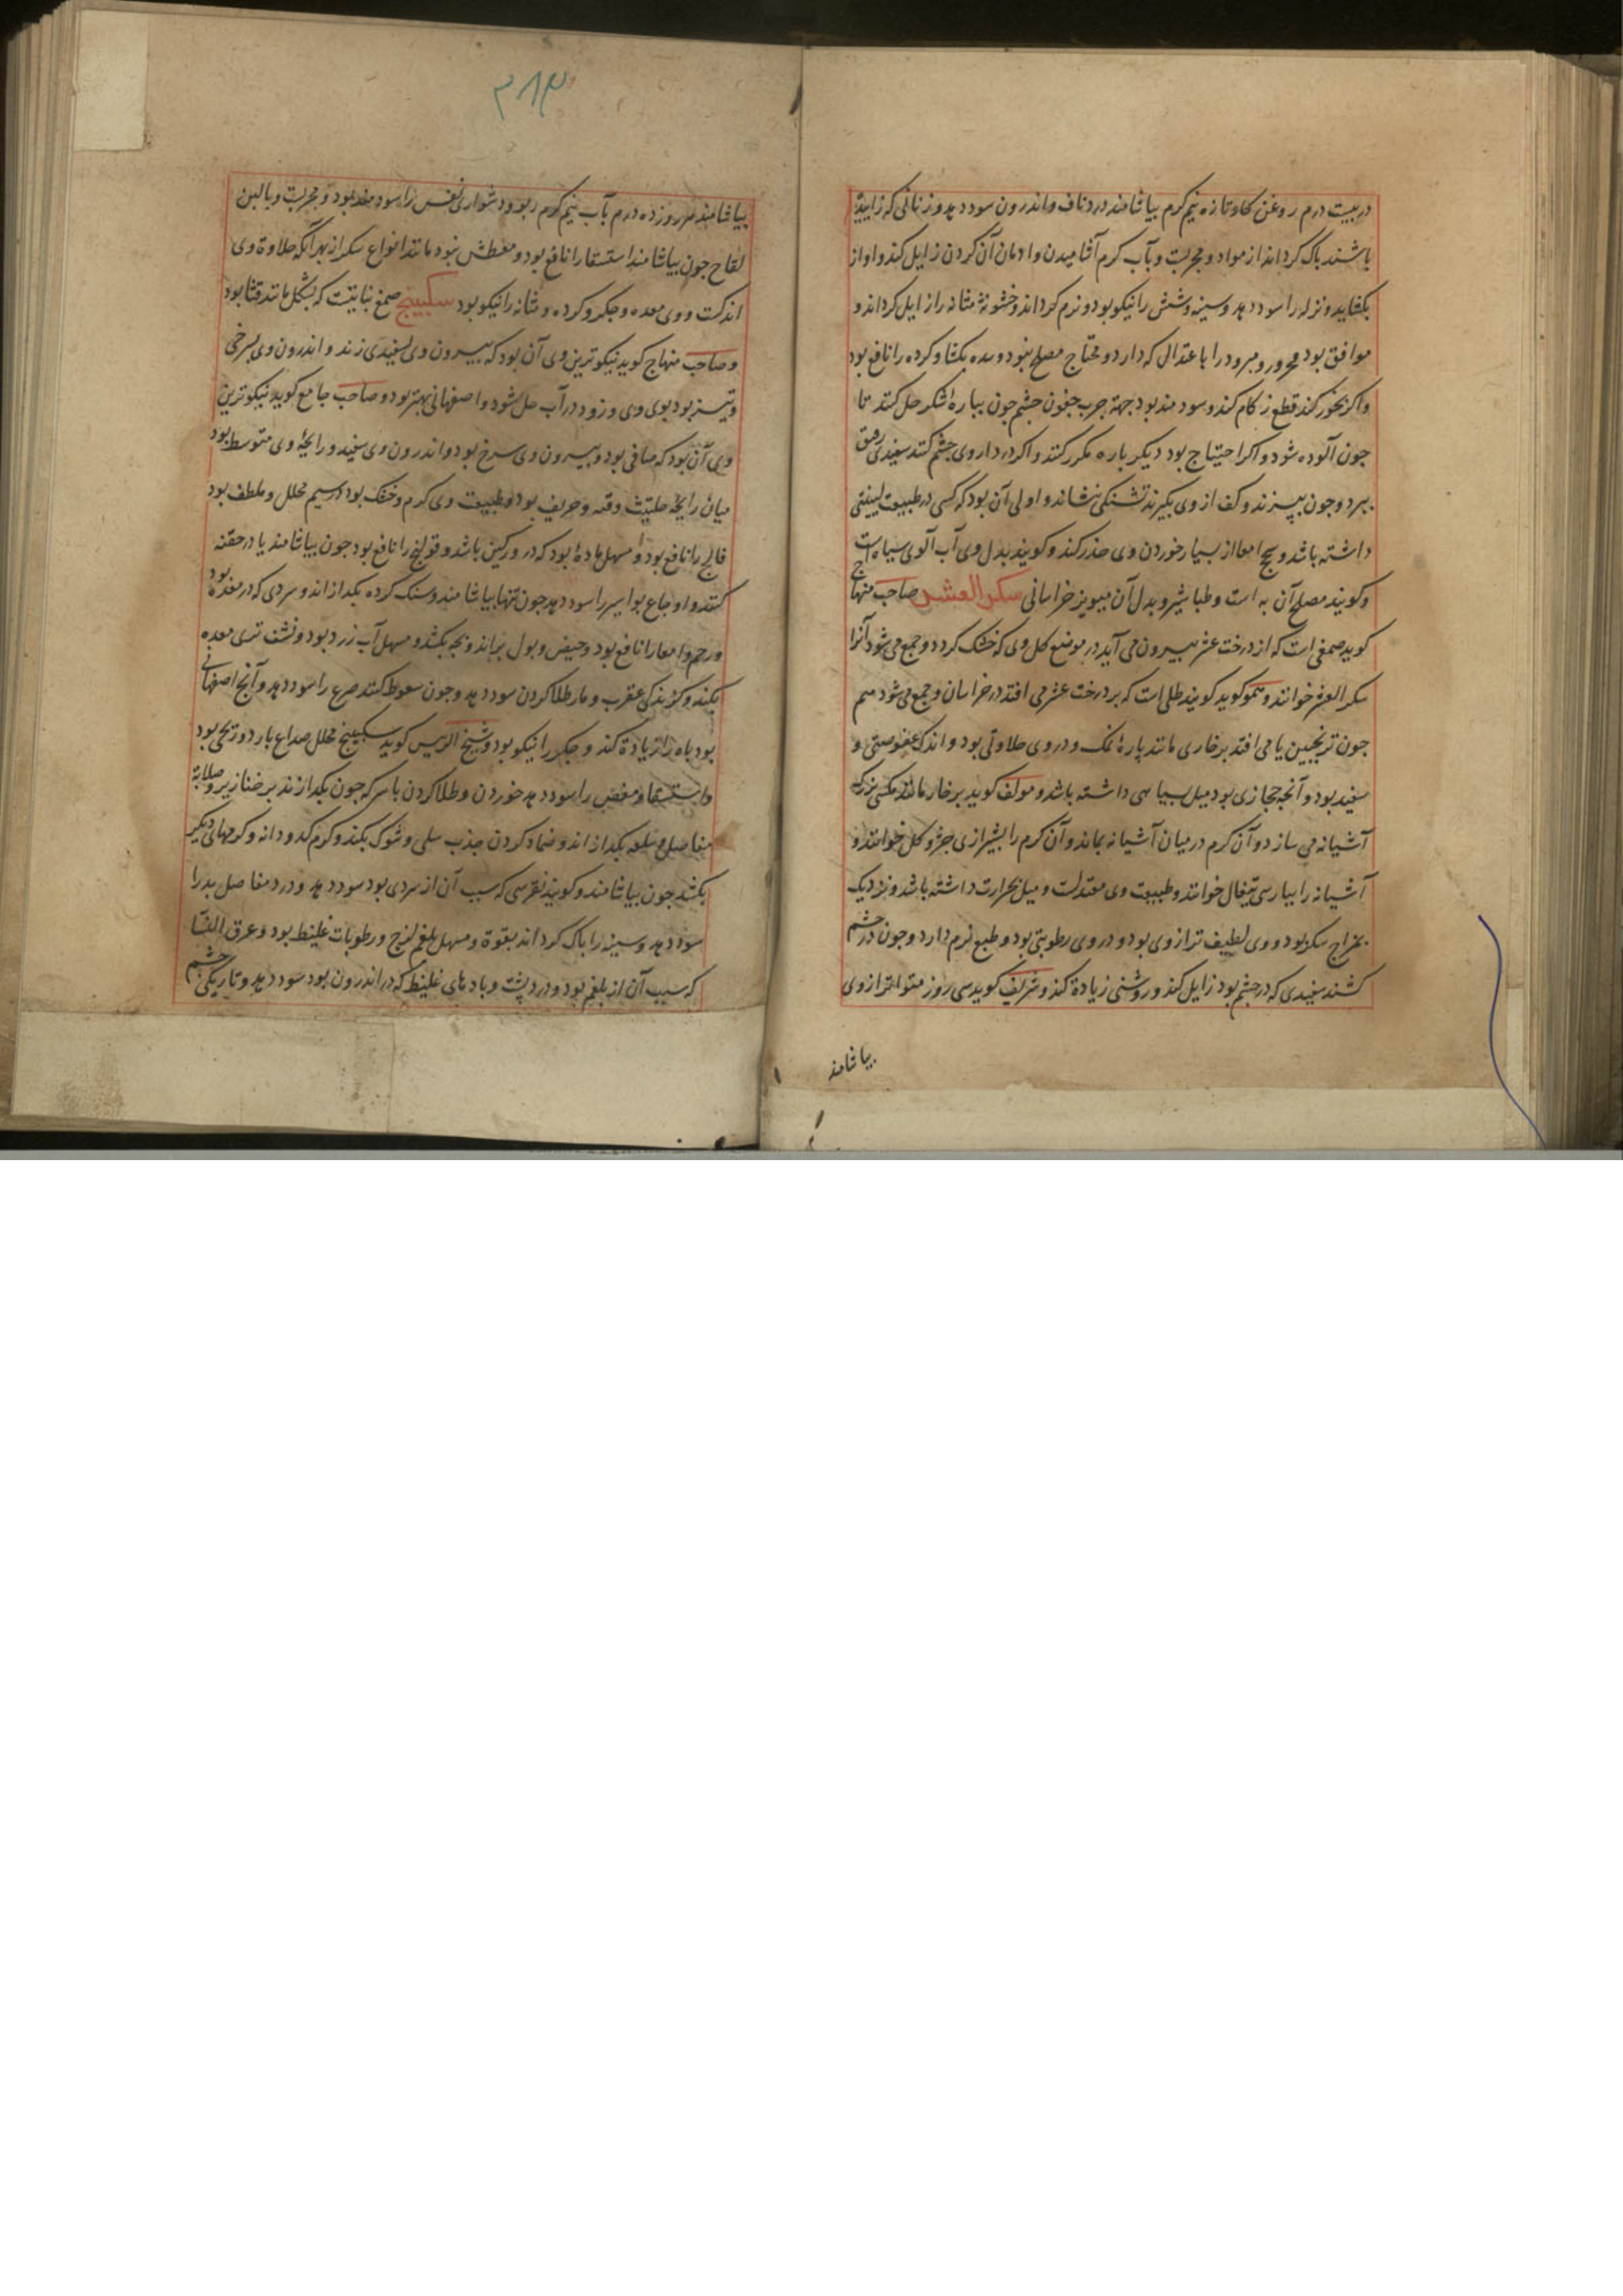 در بیست درم روغن کاو تازه نیم کرم بیاشامند درد ناف و اندرون سود دهد و زنانی که زاییده
باشند پاک کرداند از مواد و مجربست و بآب کرم آشامیدن و ادمان آن کردن زایل کند و اواز
بکشاید و نزله را سود دهد و سینه و شش را نیکو بود و نرم کرداند و خشونة مثانه را زایل کرداند و
موافق بود محرور و مبرود را با عتدالی که دارد و محتاج مصلح نبود و سده بکشاید و کرده را نافع بود
و اکر بخور کند قطع زکام کند و سودمند بود جهة جرب جفون چشم چون بپاره شکر حل کنند تا
خون آلوده شود و اکر احتیاج بود دیکر باره مکرر کنند و اکر در داروی چشم کنند سفیدی رقیق
ببرد و چون بپزند و کف از وی بکیرند تشنکی بنشاند و اولی آن بود که کسی در طبیعت لینتی
داشته باشد و سحج امعا از بسیار خوردن وی حذر کند و کویند بدل وی آب آلوی سیاه است
و کویند مصلح آن به است و طباشیر و بدل آن میویز خراسانی سکر العشر صاحب منهاج
کوید صمغی است که از درخت عشر بیرون می آید در موضع کل وی که خشک کردد و جمع می شود آنرا
سکر العشر خوانند و کوید کویند طلی است که بر درخت عشر می افتد در خراسان و جمع می شود هم
چون ترنجبین یا می افتد بر خاری مانند پارهٔ نمک و در وی حلاوتی بود و اندک عفوصتی و
سفید بود و آنچه حجازی بود میل بسیاهی داشته باشد و مولف کوید بر خار مانند مکسی بزرک
آشیانه می سازد و آن کرم در میان آشیانه بماند و آن کرم را بشیرازی کل خوانند و
آشیانه را بپارسی تیغال خوانند و طبیعت وی معتدلست و میل بحرارت داشته باشد و نزدیک
بمزاج سکر بود و وی لطیف تر از وی بود و در وی رطوبتی بود و طبع نرم دارد و چون در چشم
کشند سفیدی که در چشم بود زایل کند و روشنی زیادة کند و شریف کوید سی روز متواتر از وی
بیاشامند
۲۸۴
بیاشامند هر روز ده درم بآب نیم کرم ربو و دشواری نفس را سودمند بود و مجربست و بالبن
لقاح چون بیاشامند استسقا را نافع بود و معطش نبود مانند انواع سکر از بهر آنکه حلاوة وی
اندکست و وی معده و جکر و کرده و مثانه را نیکو بود سکبینج صمغ نباتیست که بشکل مانند قثا بود
و صاحب منهاج کوید نیکوترین وی آن بود که بیرون وی بسفیدی زند و اندرون وی بسرخی
و تیز بود بوی وی و زود در آب حل شود و اصفهانی بهتر بود و صاحب جامع کوید نیکوترین
وی آن بود که صافی بود و بیرون وی سرخ بود و اندرون وی سفید و رایحهٔ وی متوسط بود
میان رایحهٔ حلتیث و قنه و حریف بود و طبیعت وی کرم و خشک بود در سیم محلل و ملطف بود
فالج را نافع بود و مسهل مادهٔ بود که در ورکین باشد و قولنج را نافع بود چون بیاشامند یا در حقنه
کنند و اوجاع بواسیر را سود دهد چون تنها بیاشامند و سنک کرده بکدازاند و سردی که در معده بود
و رحم و امعا را نافع بود و حیض و بول براند و بچه بکشد و مسهل آب زرد بود و نشف تری معده
بکند و کزیدکی عقرب و مار طلا کردن سود دهد و چون سعوط کنند صرع را سود دهد و آنچ اصفهانی
بود باه را زیادة کند و جکر را نیکو بود و شیخ الرییس کوید سکبینج محلل صداع بارد و ریحی بود
و استسقا و مغص را سود دهد خوردن و طلا کردن با سرکه چون بکدازند بر خنازیر و صلابة
مفاصل و سلعه بکدازاند و ضماد کردن جذب سلی و شوک بکند و کرم کدودانه و کرمهای دیکر
بکشد چون بیاشامند و کویند نقرسی که سبب آن از سردی بود سود دهد و درد مفاصل بد را
سود دهد و سینه را پاک کرداند بقوة و مسهل بلغم لزج و رطوبات غلیظ بود و عرق النسا
که سبب آن از بلغم بود و درد پشت و بادهای غلیظ که در اندرون بود سود دهد و تاریکی چشم